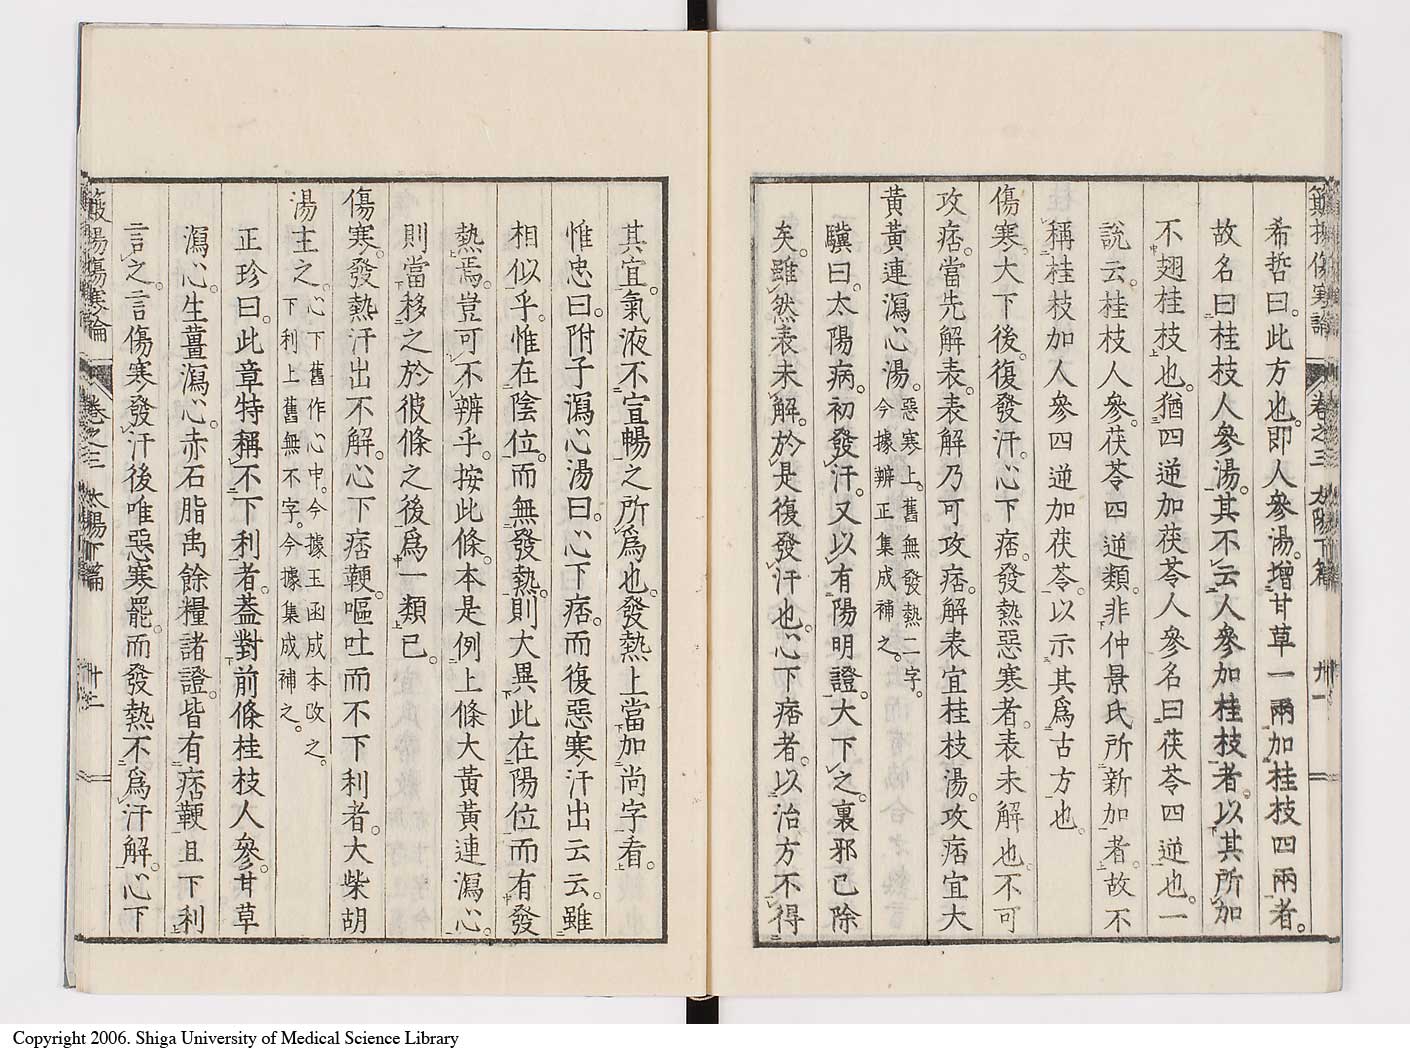 希哲曰。此方也。即人參湯。增甘草一兩。加桂枝四兩者。
故名曰桂枝人參湯。其不云人參加桂枝者。以其所加
不翅桂枝也。猶四逆加茯苓人參名曰茯苓四逆也。一
說云。桂枝人參。茯苓四逆類。非仲景氏所新加者。故不
稱桂枝加人參四逆加茯苓。以示其爲古方也。
傷寒。大下後。復發汗。心下痞。發熱惡寒者。表未解也。不可
攻痞。當先解表。表解乃可攻痞。解表宜桂枝湯。攻痞宜大
黃黃連瀉心湯。惡寒上。舊無發熱二字。今據辨正集成補之。
驥曰。太陽病。初發汗。又以有陽明證。大下之。裏邪已除
矣。雖然表未解。於是復發汗也。心下痞者。以治方不得
其宜。氣液不宣暢之所爲也。發熱上當加尚字看。
惟忠曰。附子瀉心湯曰。心下痞。而復惡寒汗出云云。雖
相似乎。惟在陰位。而無發熱。則大異此在陽位而有發
熱焉。豈可不辨乎。按此條。本是例上條大黃黃連瀉心。
則當移之於彼條之後。爲一類已。
傷寒。發熱汗出不解。心下痞鞕。嘔吐而不下利者。大柴胡
湯主之。心下舊作心中。今據玉函成本改之。下利上舊無不字。今據集成補之。
正珍曰。此章特稱不下利者。蓋對前條桂枝人參。甘草
瀉心。生薑瀉心。赤石脂禹餘糧諸證。皆有痞鞕且下利
言之。言傷寒發汗後唯惡寒罷。而發熱不爲汗解。心下
卷之三 太陽下篇 卅一
傷寒論 卷之三 太陽下篇
Copyright 2006. Shiga University of Medical Science Library